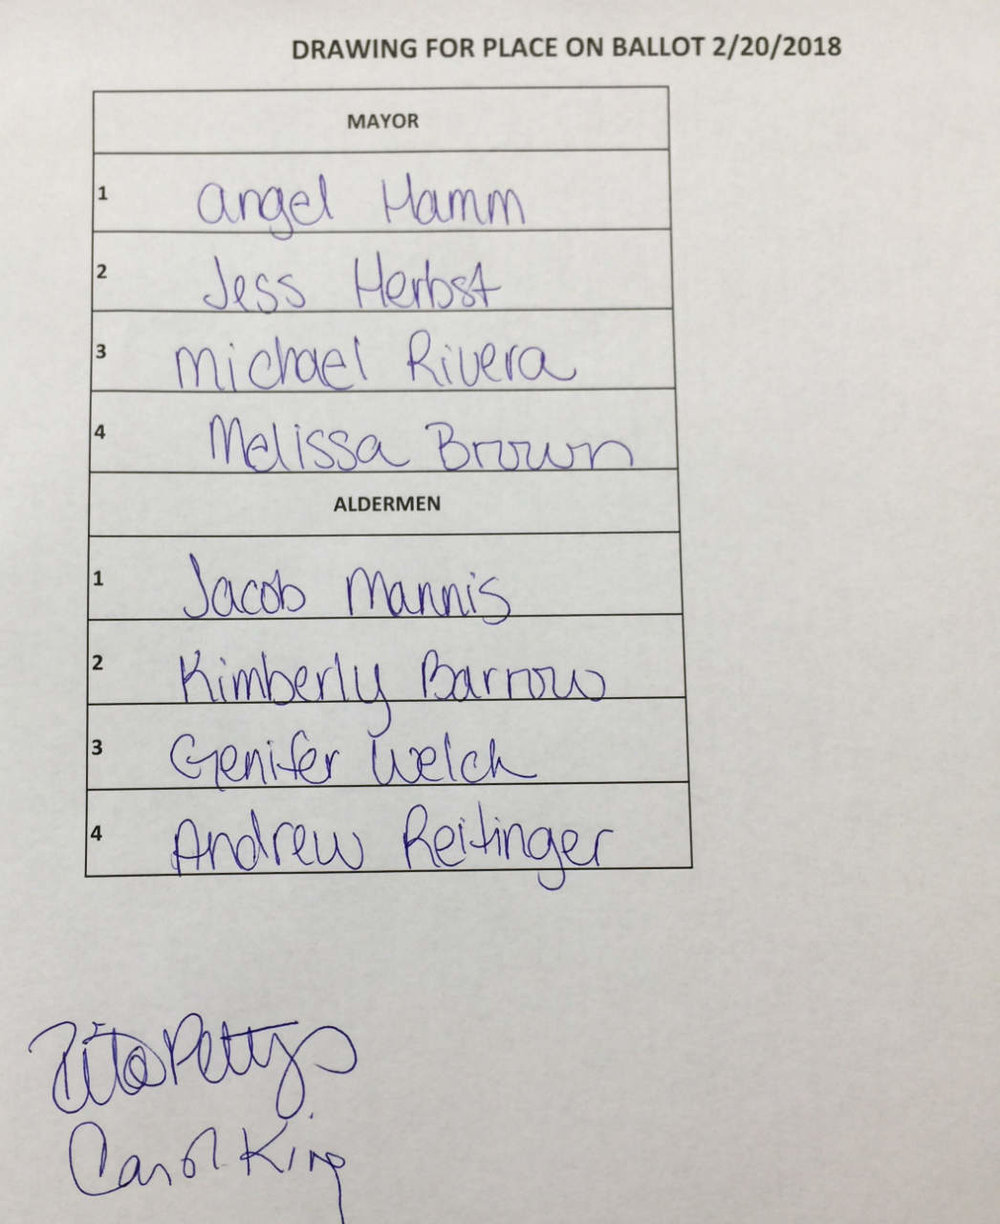 DRAWING FOR PLACE ON BALLOT 2/20/2018
MAYOR
1 Angel Hamm
2 Jess Herbst
3 Michael Rivera
4 Melissa Brown
ALDERMEN
1 Jacob Mannis
2 Kimberly Barrow
3 Genifer Welch
4 Andrew Reitinger
Rita Pettys
Carol King